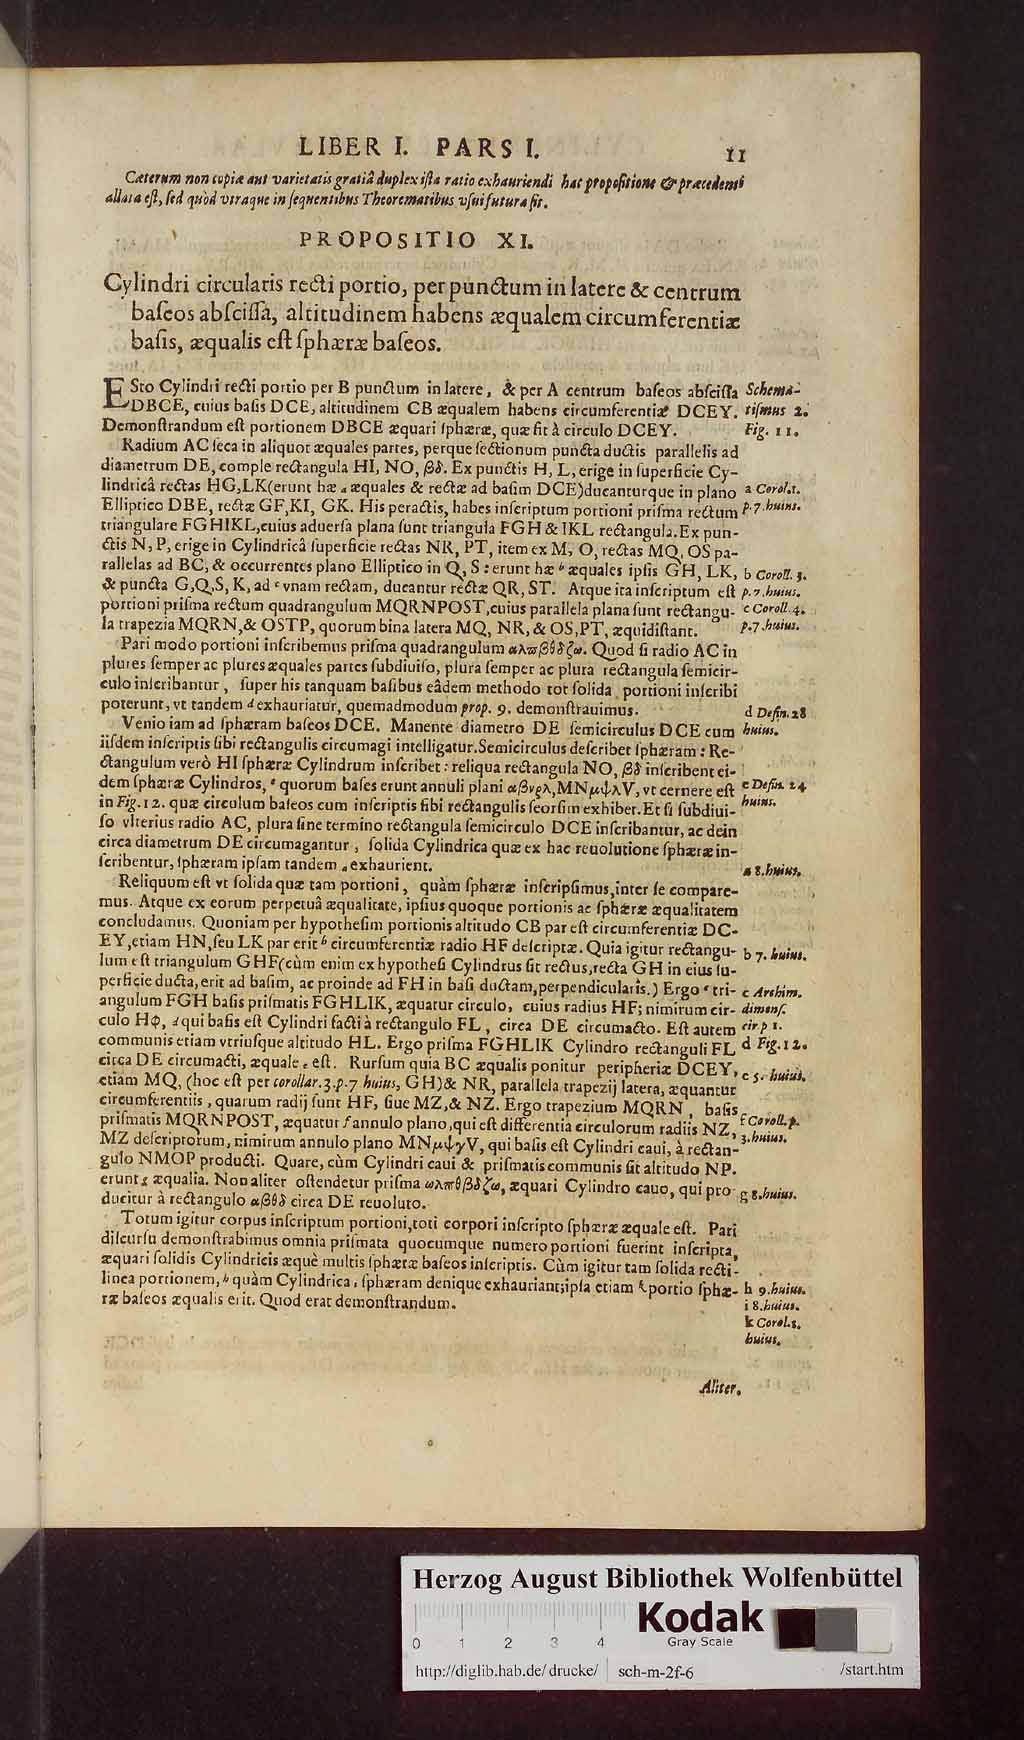 LIBER I. PARS I. 11
Cæterum non copiæ aut varietatis gratiâ duplex ista ratio exhauriendi hac propositione & præcedenti
allata est, sed quòd vtraque in sequentibus Theorematibus vsui futura sit.
PROPOSITIO XI.
Cylindri circularis recti portio, per punctum in latere & centrum
baseos abscissa, altitudinem habens æqualem circumferentiæ
basis, æqualis est sphæræ baseos.
ESto Cylindri recti portio per B punctum in latere, & per A centrum baseos abscissa Schema-
DBCE, cuius basis DCE, altitudinem CB æqualem habens circumferentiæ DCEY. tismus 2.
Demonstrandum est portionem DBCE æquari sphæræ, quæ fit à circulo DCEY. Fig. 11.
Radium AC seca in aliquot æquales partes, perque sectionum puncta ductis parallelis ad
diametrum DE, comple rectangula HI, NO, βδ. Ex punctis H, L, erige in superficie Cy-
lindricâ rectas HG, LK (erunt hæ a æquales & rectæ ad basim DCE) ducanturque in plano a Corol.1.
Elliptico DBE, rectæ GF, KI, GK. His peractis, habes inscriptum portioni prisma rectum p.7.huius.
triangulare FGHIKL, cuius aduersa plana sunt triangula FGH & IKL rectangula. Ex pun-
ctis N, P, erige in Cylindricâ superficie rectas NR, PT, item ex M, O, rectas MQ, OS pa-
rallelas ad BC, & occurrentes plano Elliptico in Q, S: erunt hæ b æquales ipsis GH, LK, b Coroll. 3.
& puncta G, Q, S, K, ad c vnam rectam, ducantur rectæ QR, ST. Atque ita inscriptum est p.7.huius.
portioni prisma rectum quadrangulum MQRNPOST, cuius parallela plana sunt rectangu- c Coroll.4.
la trapezia MQRN, & OSTP, quorum bina latera MQ, NR, & OS, PT, æquidistant. p.7.huius.
Pari modo portioni inscribemus prisma quadrangulum αλπβθδζω. Quod si radio AC in
plures semper ac plures æquales partes subdiuiso, plura semper ac plura rectangula semicir-
culo inscribantur, super his tanquam basibus eâdem methodo tot solida portioni inscribi
poterunt, vt tandem d exhauriatur, quemadmodum prop. 9. demonstrauimus. d Defin. 28
Venio iam ad sphæram baseos DCE. Manente diametro DE semicirculus DCE cum huius.
iisdem inscriptis sibi rectangulis circumagi intelligatur. Semicirculus describet sphæram: Re-
ctangulum verò HI sphæræ Cylindrum inscribet: reliqua rectangula NO, βδ inscribent ei-
dem sphæræ Cylindros, e quorum bases erunt annuli plani αβνρλ, MNμψλV, vt cernere est e Defin. 24
in Fig. 12. quæ circulum baseos cum inscriptis sibi rectangulis seorsim exhibet. Et si subdiui- huius.
so vlterius radio AC, plura sine termino rectangula semicirculo DCE inscribantur, ac dein
circa diametrum DE circumagantur, solida Cylindrica quæ ex hac reuolutione sphæræ in-
scribentur, sphæram ipsam tandem a exhaurient. a 8.huius.
Reliquum est vt solida quæ tam portioni, quàm sphæræ inscripsimus, inter se compare-
mus. Atque ex eorum perpetuâ æqualitate, ipsius quoque portionis ac sphæræ æqualitatem
concludamus. Quoniam per hypothesim portionis altitudo CB par est circumferentiæ DC-
EY, etiam HN, seu LK par erit b circumferentiæ radio HF descriptæ. Quia igitur rectangu- b 7. huius.
lum est triangulum GHF (cùm enim ex hypothesi Cylindrus sit rectus, recta GH in eius su-
perficie ducta, erit ad basim, ac proinde ad FH in basi ductam, perpendicularis.) Ergo c tri- c Archim.
angulum FGH basis prismatis FGHLIK, æquatur circulo, cuius radius HF; nimirum cir- dimens.
culo HΦ, d qui basis est Cylindri facti à rectangulo FL, circa DE circumacto. Est autem cir p 1.
communis etiam vtriusque altitudo HL. Ergo prisma FGHLIK Cylindro rectanguli FL d Fig.12.
circa DE circumacti, æquale e est. Rursum quia BC æqualis ponitur peripheriæ DCEY, e 5. huius.
etiam MQ, (hoc est per corollar.3.p.7 huius, GH) & NR, parallela trapezij latera, æquantur
circumferentiis, quarum radij sunt HF, siue MZ, & NZ. Ergo trapezium MQRN, basis
prismatis MQRNPOST, æquatur f annulo plano, qui est differentia circulorum radiis NZ, f Coroll.p.
MZ descriptorum, nimirum annulo plano MNμψγV, qui basis est Cylindri caui, à rectan- 3.huius.
gulo NMOP producti. Quare, cùm Cylindri caui & prismatis communis sit altitudo NP.
erunt g æqualia. Non aliter ostendetur prisma ωλπθβδζω, æquari Cylindro cauo, qui pro- g 8.huius.
ducitur à rectangulo αβθδ circa DE reuoluto.
Totum igitur corpus inscriptum portioni, toti corpori inscripto sphæræ æquale est. Pari
discursu demonstrabimus omnia prismata quocumque numero portioni fuerint inscripta,
æquari solidis Cylindricis æquè multis sphæræ baseos inscriptis. Cùm igitur tam solida recti-
linea portionem, h quàm Cylindrica i sphæram denique exhauriant; ipsa etiam k portio sphæ- h 9.huius.
ræ baseos æqualis erit. Quod erat demonstrandum. i 8.huius.
k Corol.1.
huius.
Aliter.
Herzog August Bibliothek Wolfenbüttel
Kodak
Gray Scale
0 1 2 3 4
http://diglib.hab.de/drucke/ sch-m-2f-6 /start.htm